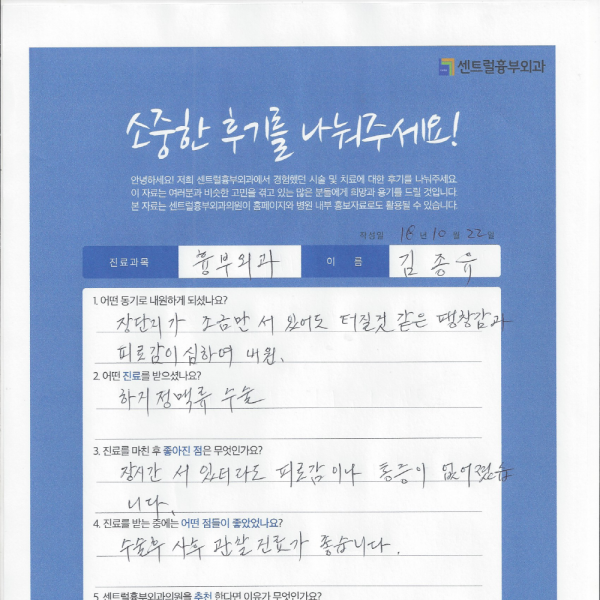 센트럴흉부외과
소중한 후기를 나눠주세요!
안녕하세요! 저희 센트럴흉부외과에서 경험했던 시술 및 치료에 대한 후기를 나눠주세요.
이 자료는 여러분과 비슷한 고민을 겪고 있는 많은 분들에게 희망과 용기를 드릴 것입니다.
본 자료는 센트럴흉부외과의원이 홈페이지와 병원 내부 홍보자료로도 활용될 수 있습니다.
작성일 18년 10월 22일
진료과목 흉부외과 이름 김종유
1. 어떤 동기로 내원하게 되셨나요?
장단지가 조금만 서 있어도 터질것 같은 땡창감과
피로감이 심하여 내원.
2. 어떤 진료를 받으셨나요?
하지정맥류 수술
3. 진료를 마친 후 좋아진 점은 무엇인가요?
장시간 서 있더라도 피로감이나 통증이 없어졌습
니다.
4. 진료를 받는 중에는 어떤 점들이 좋았었나요?
수술후 사후 관찰진료가 좋습니다.
5. 센트럴흉부외과의원을 추천 한다면 이유가 무엇인가요?